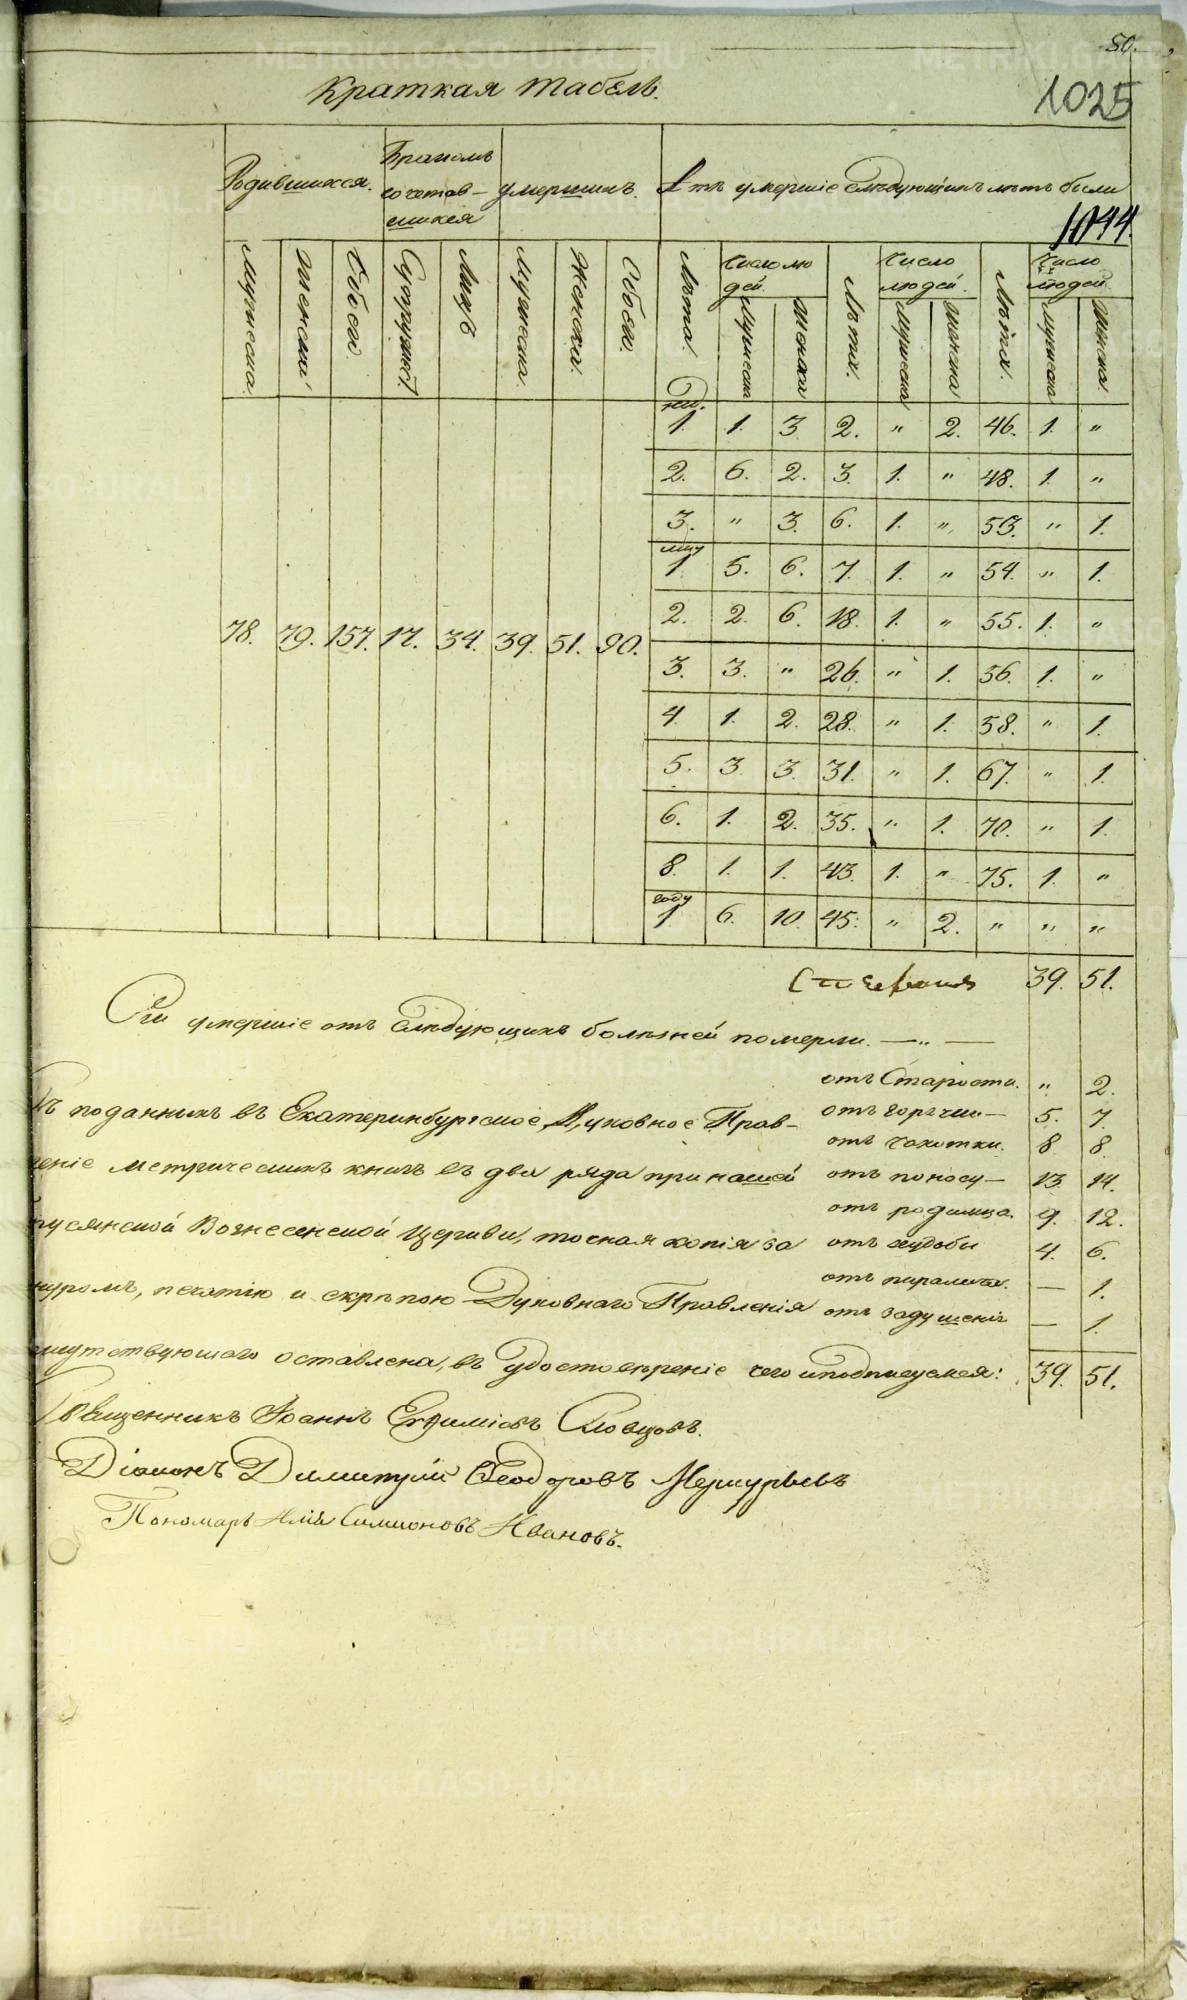 50.
Краткая табель.
1025
Родившихся. Бракомъ сочетав- шихся умершихъ. А тѣ умершіе слѣдующихъ лѣтъ были
1044
Мужеска. Женска. Обоего. Супружест. Лицъ Мужеска. Женска. Обоего. Лѣта. Число людей. Мужеска Женска Лѣта. Число людей. Мужеска Женска Лѣта. Число людей. Мужеска Женска.
нед.
1. 1. 3. 2. " 2. 46. 1. "
2. 6. 2. 3. 1. " 48. 1. "
3. " 3. 6. 1. " 53. " 1.
мцу
1 5. 6. 7. 1. " 54. " 1.
2. 2. 6. 18. 1. " 55. 1. "
78. 79. 157. 17. 34. 39. 51. 90.
3. 3. " 26. " 1. 56. 1. "
4. 1. 2. 28. " 1. 58. " 1.
5. 3. 3. 31. " 1. 67. " 1.
6. 1. 2. 35. " 1. 70. " 1.
8. 1. 1. 43. 1. " 75. 1. "
году
1 6. 10. 45. " 2. " " "
39. 51.
Сіи умершіе отъ слѣдующихъ болѣзней померли. — " —
отъ Старости. " 2.
отъ горячки — 5. 7.
отъ чахотки. 8 8.
отъ поносу — 13. 14.
отъ родимца. 9. 12.
отъ худобы 4. 6.
отъ паралича. — 1.
отъ задушенія — 1.
39. 51.
поданныхъ въ Екатеринбургское Духовное Прав-
леніе метрическихъ книгъ въ два ряда при нашей
Вознесенской Церкви, точная копія за
шнуромъ, печатію и скрѣпою Духовнаго Правленія
присутствующаго оставлена, въ удостовѣреніе чего и подписуемся:
Священникъ Іоаннъ Евѳиміевъ Словцовъ.
Діаконъ Димитрій Ѳеодоровъ Меркурьевъ
Пономарь Илія Симионовъ Ивановъ.
METRIKI.GASO-URAL.RU